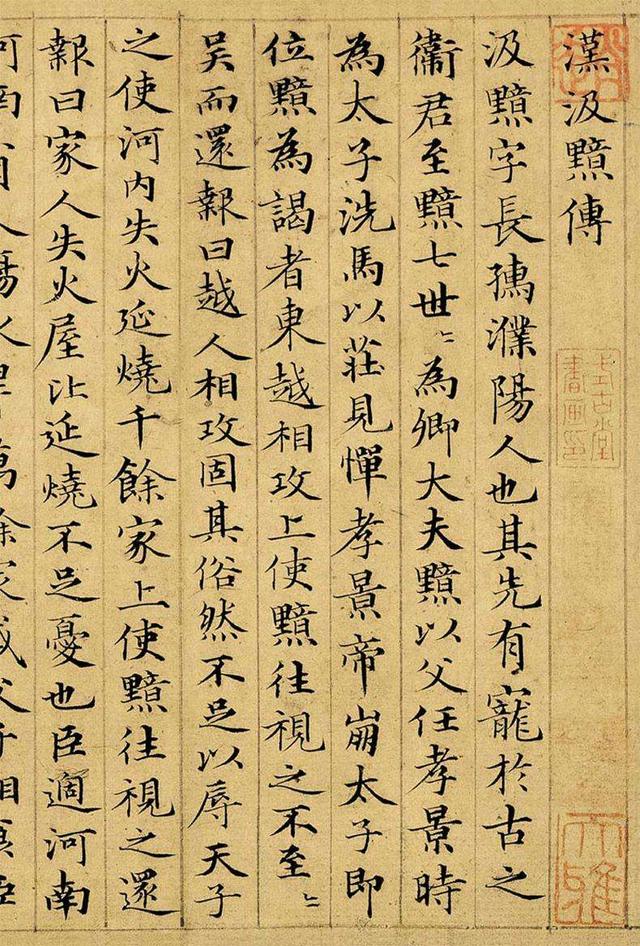 漢汲黯傳
汲黯字長孺濮陽人也其先有寵於古之
衛君至黯七世〻為卿大夫黯以父任孝景時
為太子洗馬以莊見憚孝景帝崩太子即
位黯為謁者東越相攻上使黯往視之不至〻
吳而還報曰越人相攻固其俗然不足以辱天子
之使河内失火延燒千餘家上使黯往視之還
報曰家人失火屋比延燒不足憂也臣適河南
河南人傷水旱萬餘家或父子相
式古堂
書画印
大雅